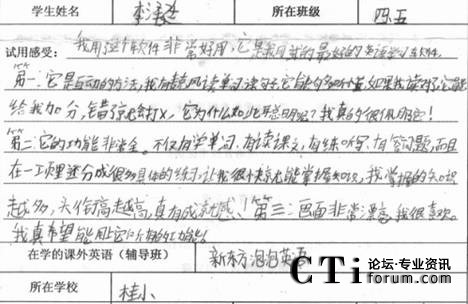 学生姓名 李 所在班级 四.五
试用感受: 我用这个软件非常好用,它是我见过的最好的英语学习软件。
第一:它是互动的方法,我对着麦克风读单词读句子,它能如果我读对了,它能
给我加分,错就会打X,它为什么如此聪明呢?我真的很佩服它!
第二:它的功能非常全。不仅有学单词,有读课文,有练听写,有答问题,而且
在一项里还分成很多具体的练习,让我很快就能掌握知识,我掌握的知识
越多,头像高越高,真有成就感!第三:画面非常漂亮,我很喜欢。
我真希望能用它所有的功能!
在学的课外英语(辅导班) 新东方泡泡英语
所在学校 桂小
CTi论坛·专业资讯
www.ctiforum.com